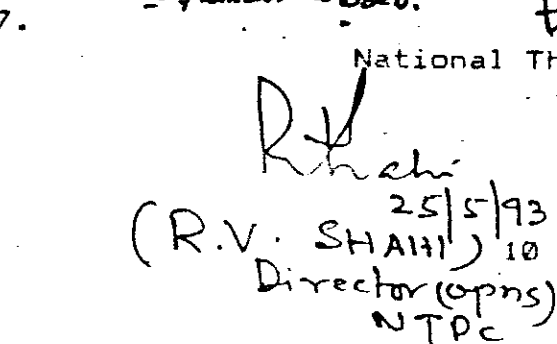 7.
National Th
25/5/93
(R.V. SHAHI) 10
Director (opns)
NTPC